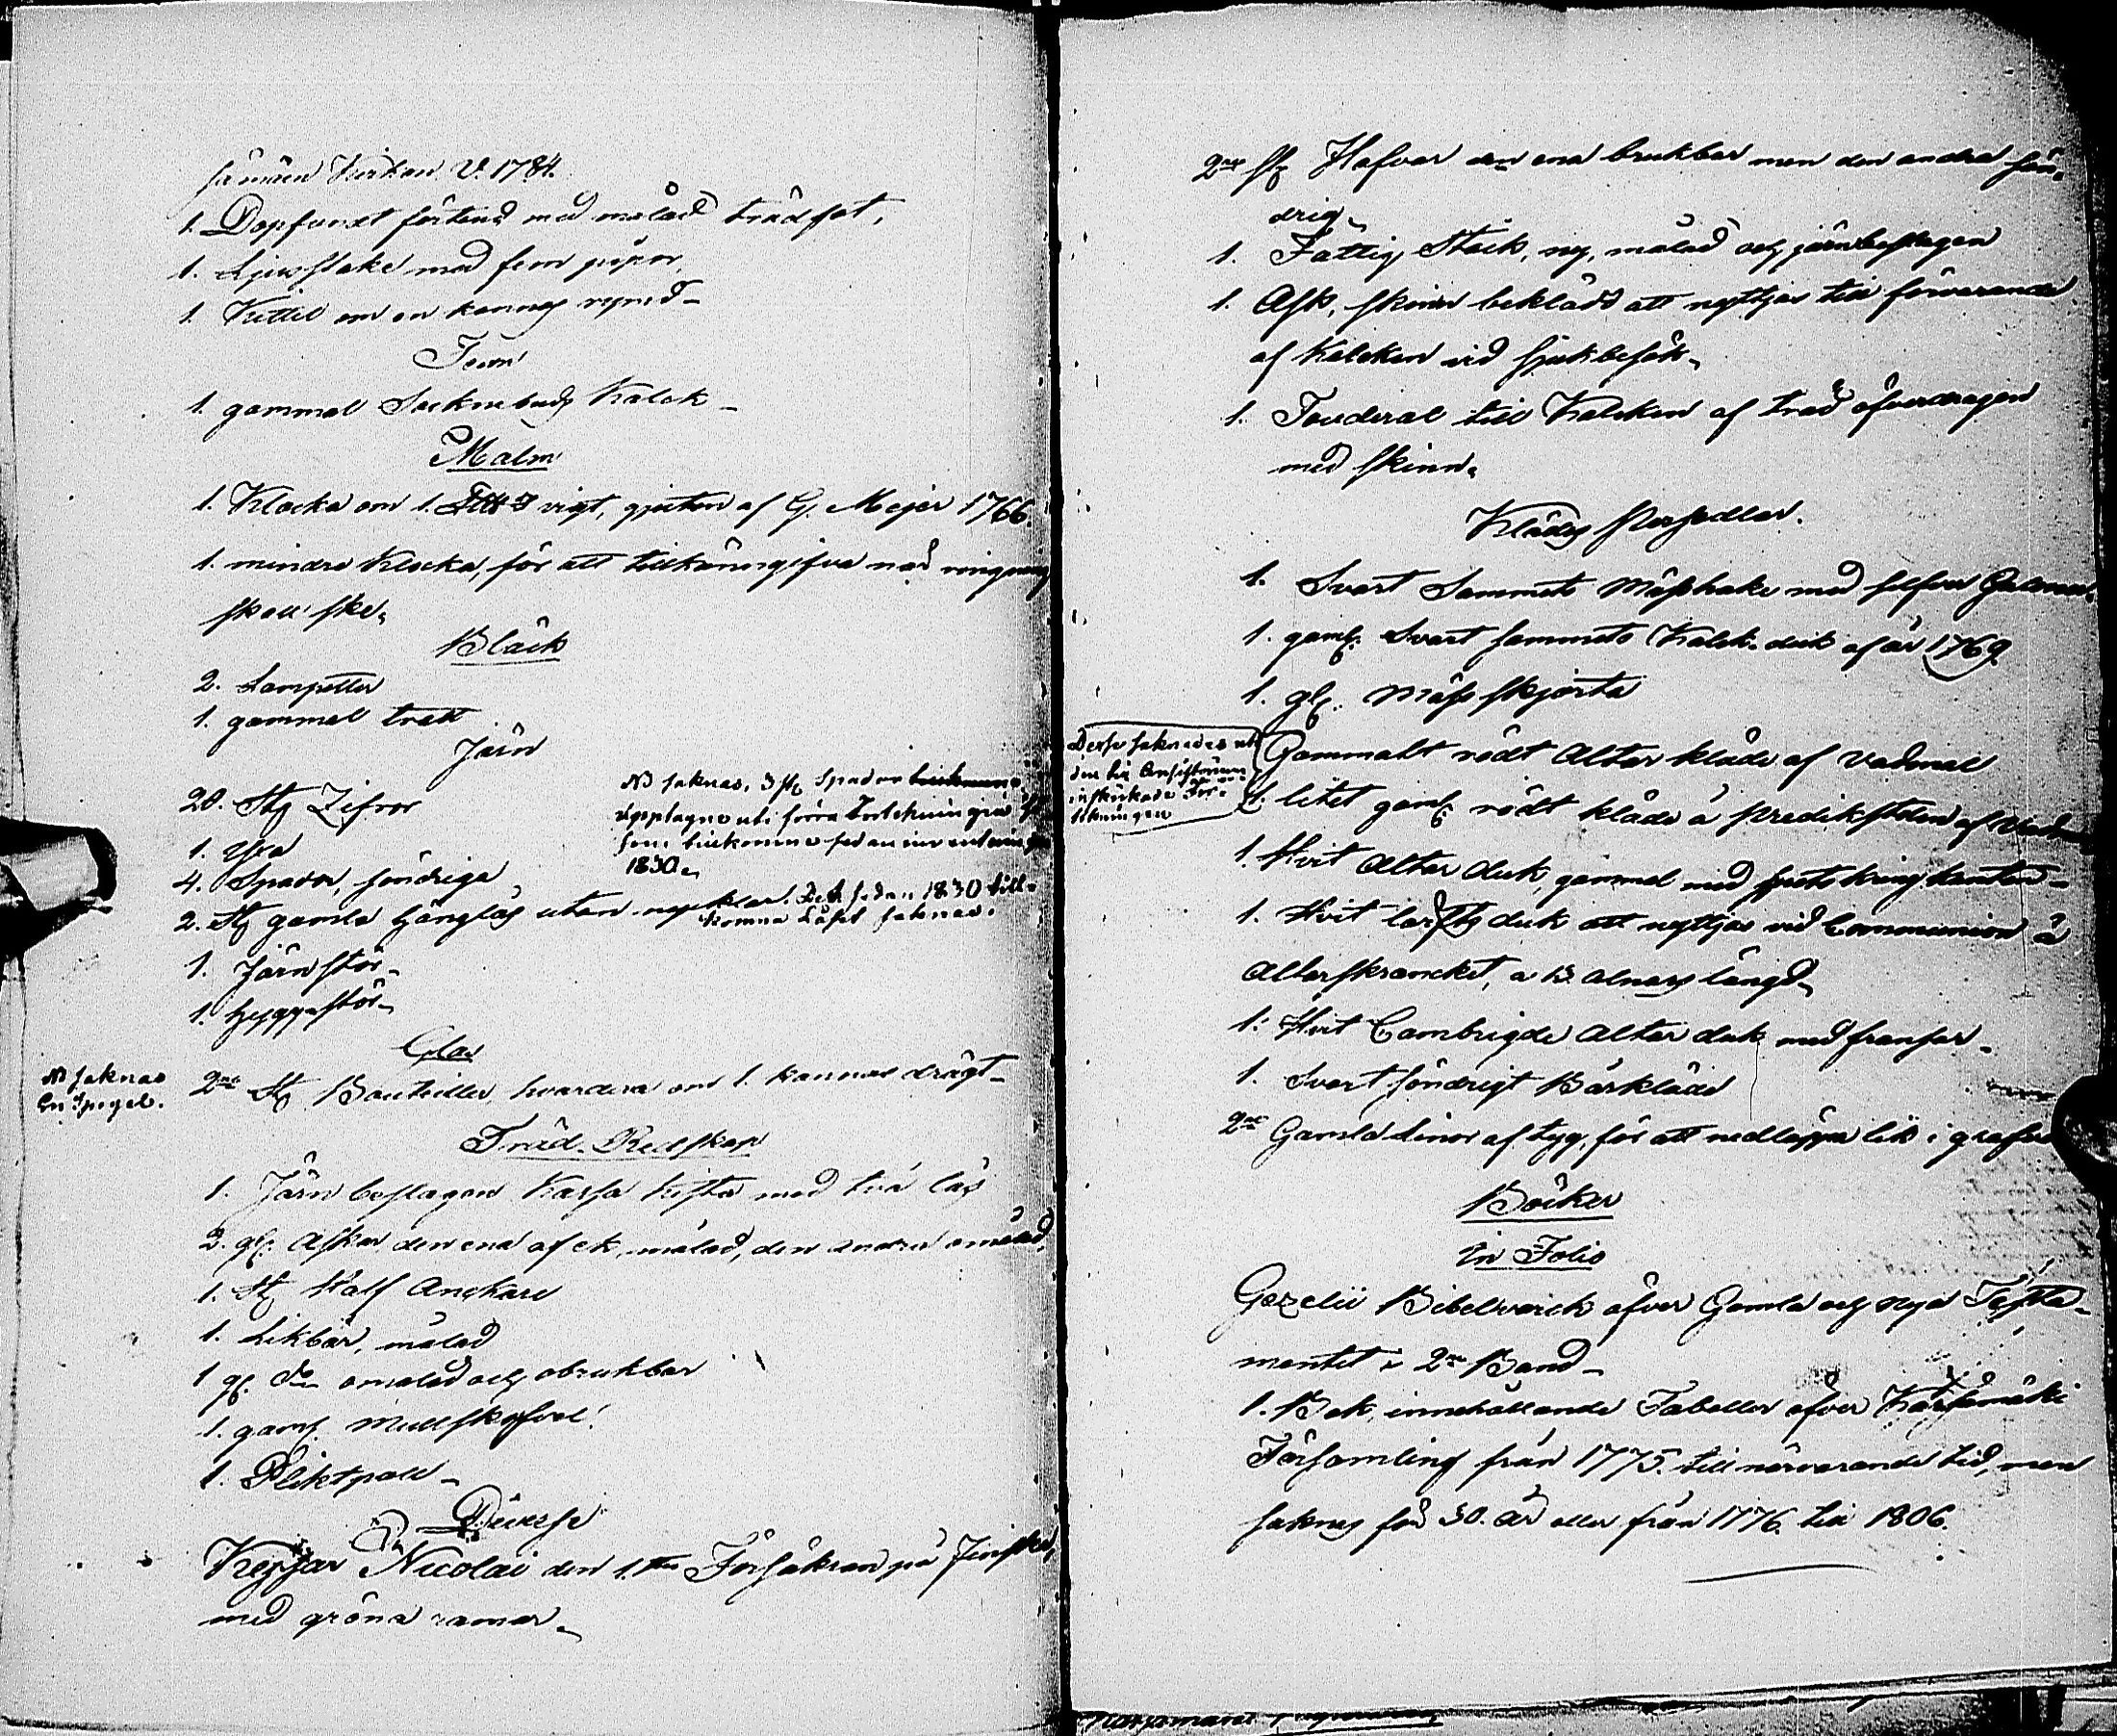 Kirkan 1784.
1. Dopfunt förtend med målad trädfot,
1. Ljusstake med fem pipor,
1. Kittel om en kannas rymd
Tenn
1. gammal Sockenbuds Kalck
Malm
1. Klocka om 1. vigt, gjuten af G. Mejer 1766.
1. mindre Klocka, för att tillkännagifva när ringning
skall ske.
Bläck
2. Lampetter
1. gammal tratt
Järn
20. St. Zifror
NB saknas, 3 st. Spadar
upptagne uti förra Forteckningen
som tillkomne sedan inventeringen
1830.
1. Yxa
4. Spador, söndriga
2. St. gamla hänglås utan nycklar. Det sedan 1830 till-
komna Låset saknas.
1. Järnstör
1. hyggestör
Glas
NB saknas
En Spegel.
2ne St. Bouteiller, hvardera om 1. kannas drägt
Träd-Redskap
1. Järn beslagen Kassa kista med två lås
2. gl. Askar den ena af ek, målad, den andra omålad.
1. St. Half Anckare
1. Likbår, målad
1 gl. do omålad och obrukbar
1. gaml. Mullskofvel
1. Pliktpall
Diverse
Kejsar Nicolai den 1.sta Försäkran på Finska,
med gröna ramar.
2ne st. Hafvar den ena brukbar men den andra sön-
drig
1. Fattig Stock, ny, målad och järnbeslagen
1. Ask, skinn beklädd att nyttjas till förvarande
af Kalcken vid Sjukbesök
1. Fouderal till Kalcken af träd öfverdragen
med skinn.
Kläds Persedlar.
1. Svart Sammets Mässhake med silfver Galoner.
1. gaml. Svart sammets Kalck-duk af år 1769.
1. gl. Mässskjorta
Desse saknades uti
den till Consistorium
inskickade För-
tekningen
Gammalt rödt Altar kläde af vadmal
1. litet gaml. rödt kläde å Predikstolen af Vadmal
1. Hvit Altar duk, gammal med spets kring kanten
1. Hvit lärfts duk att nyttjas vid Communion å
Altarskrancket, a 13 alnars längd
1. Hvit Cambrigde Altar duk med fransar
1. Svart söndrigt Bårkläde
2ne Gamla Linor af tyg, för att nedläppa lik i grafven
Böcker
in Folio
Gezelii Bibelverck öfver Gamla och Nya Testa-
mentet i 2ne Band
1. Bok, innehållande Tabeller öfver Kärsämäki
Församling från 1775. till närvarande tid, men
saknas för 30. år eller från 1776. till 1806.